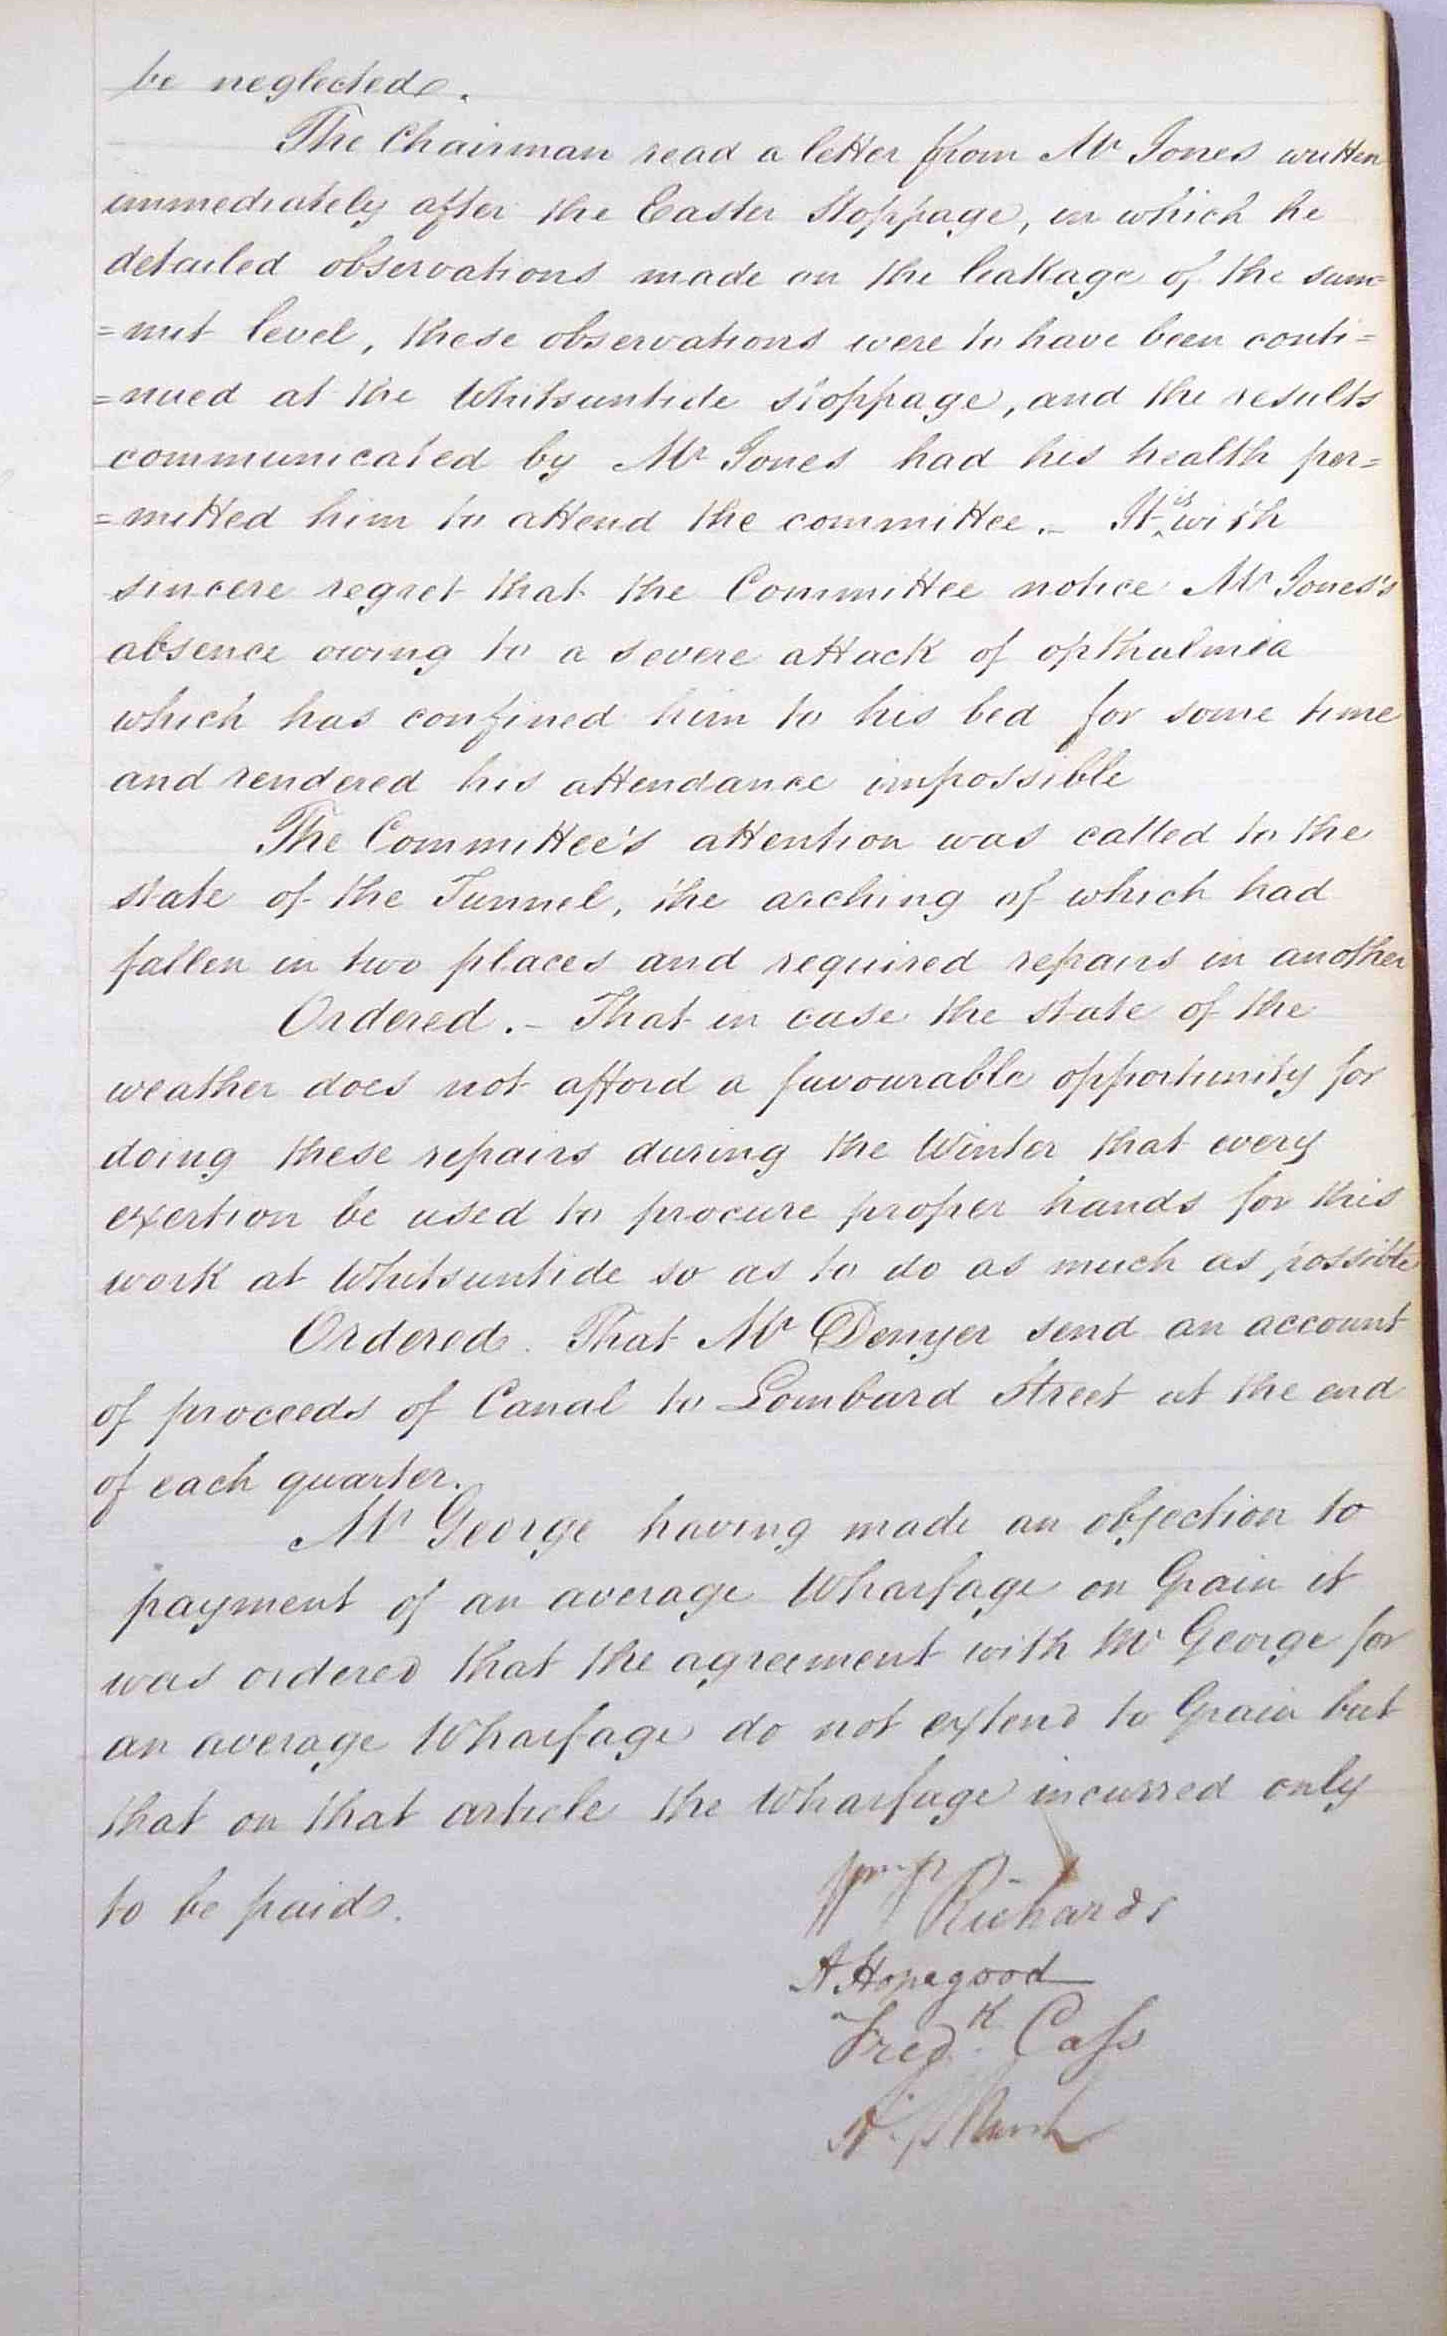 be neglected.
The Chairman read a letter from Mr Jones written
immediately after the Easter Stoppage, in which he
detailed observations made on the leakage of the sum=
=mit level, these observations were to have been conti=
=nued at the Whitsuntide stoppage, and the results
communicated by Mr Jones had his health per=
=mitted him to attend the committee. _ It is with
sincere regret that the Committee notice Mr Jones's
absence owing to a severe attack of opthalmia
which has confined him to his bed for some time
and rendered his attendance impossible
The Committee's attention was called to the
state of the Tunnel, the arching of which had
fallen in two places and required repairs in another
Ordered. _ That in case the state of the
weather does not afford a favourable opportunity for
doing these repairs during the Winter that every
exertion be used to procure proper hands for this
work at Whitsuntide so as to do as much as possible
Ordered. That Mr Denyer send an account
of proceeds of Canal to Lombard Street at the end
of each quarter.
Mr George having made an objection to
payment of an average Wharfage on Grain it
was ordered that the agreement with Mr George for
an average Wharfage do not extend to Grain but
that on that article the Wharfage incurred only
to be paid.
Richards
A Hopegood
Fredk. Cass